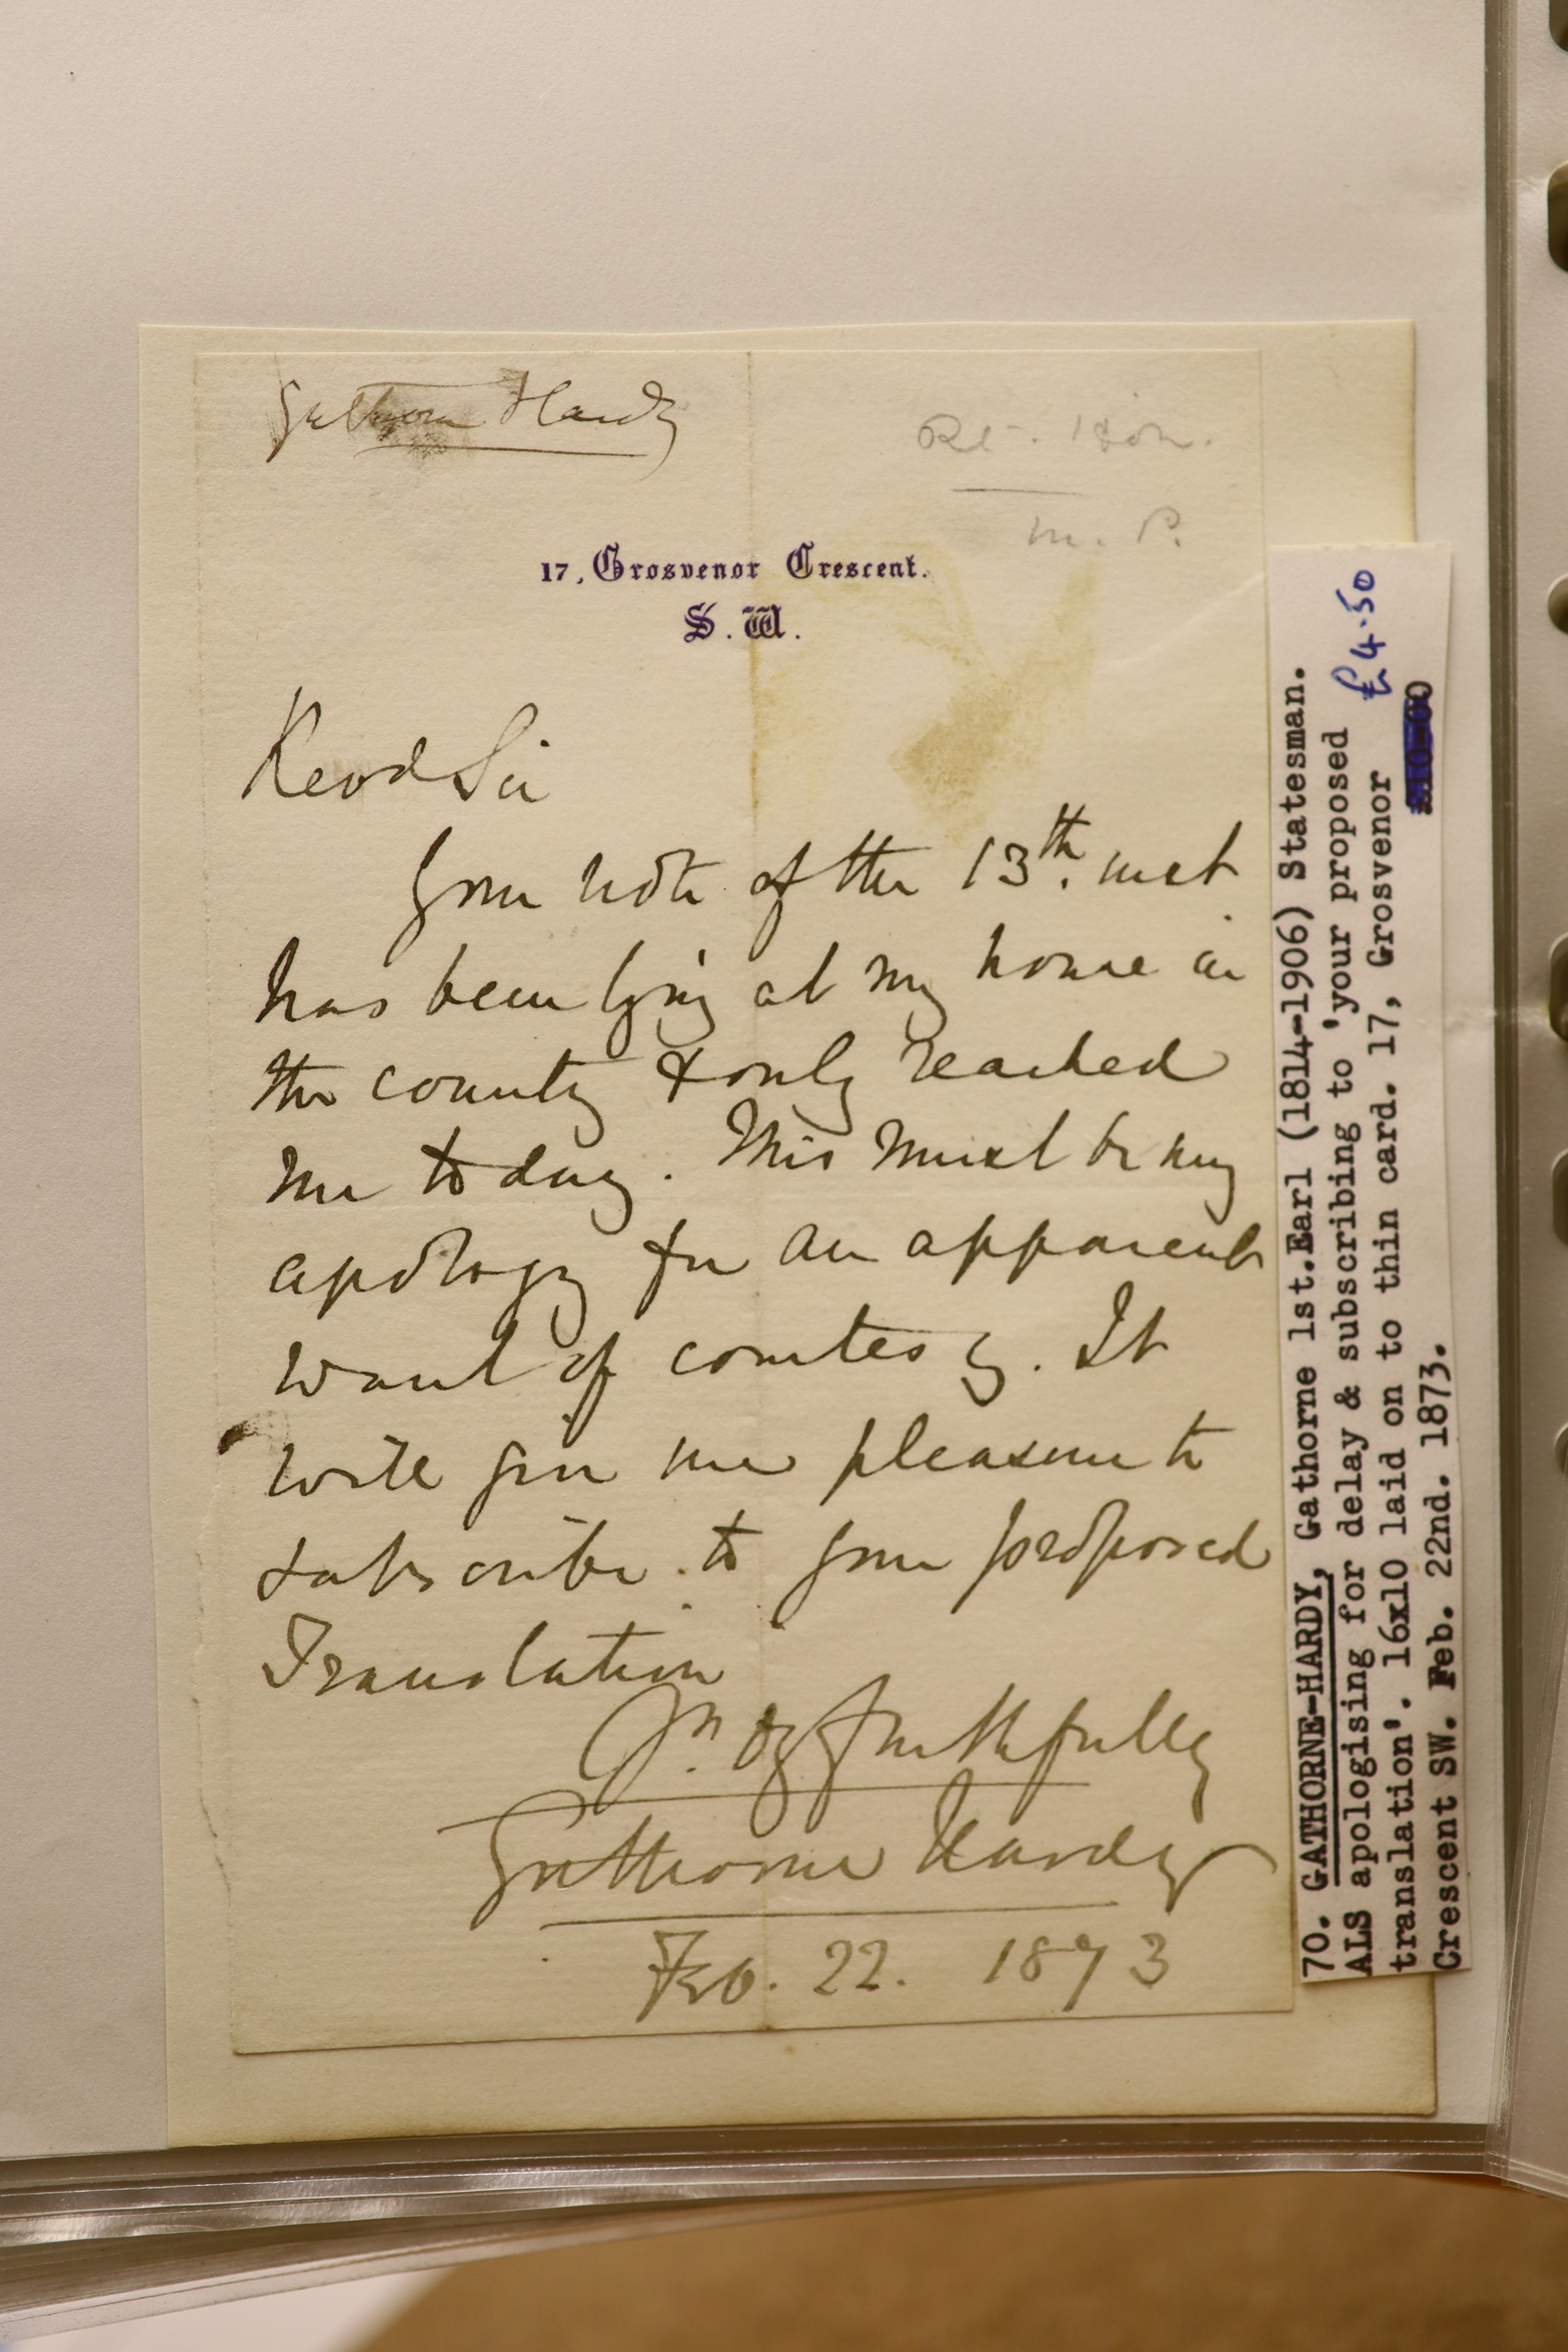 Gathorne Hardy
Rt. Hon.
M. P.
17, Grosvenor Crescent.
S. W.
Revd Sir
Your note of the 13th. inst
has been lying at my house in
the country & only reached
me to day. This must be my
apology for an apparent
want of courtesy. It
will give me pleasure to
subscribe to your proposed
Translation
Yrs. faithfully
Gathorne Hardy
Feb. 22. 1873
70. GATHORNE-HARDY, Gathorne 1st.Earl (1814-1906) Statesman.
ALS apologising for delay & subscribing to 'your proposed
translation'. 16x10 laid on to thin card. 17, Grosvenor
Crescent SW. Feb. 22nd. 1873.
£4.50